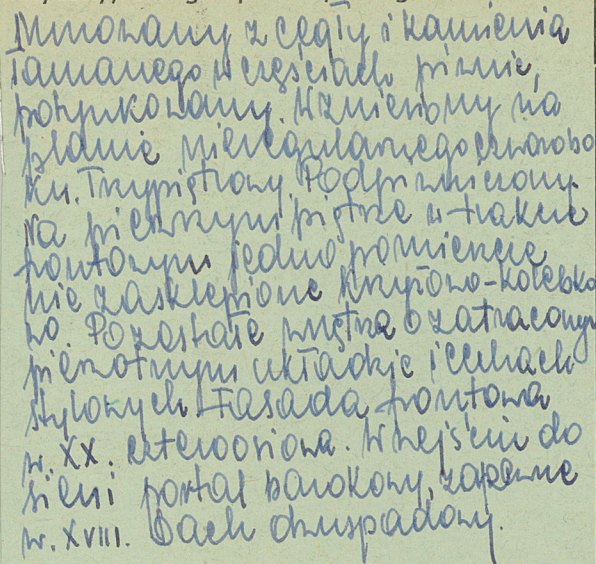 Murowany z cegły i kamienia
łamanego w częściach piwnic,
potynkowany. Wzniesiony na
planie nieregularnego czworobo
ku. Trzypiętrowy. Podpiwniczony.
Na pierwszym piętrze w trakcie
frontowym jedno pomieszcze
nie zasklepione krzyżowo-kolebko
wo. Pozostałe wnętrza o zatraconym
pierwotnym układzie i cechach
stylowych. Fasada frontowa
w. XX. czteroosiowa. W wejściu do
sieni portal barokowy, zapewne
w. XVIII. Dach dwuspadowy.